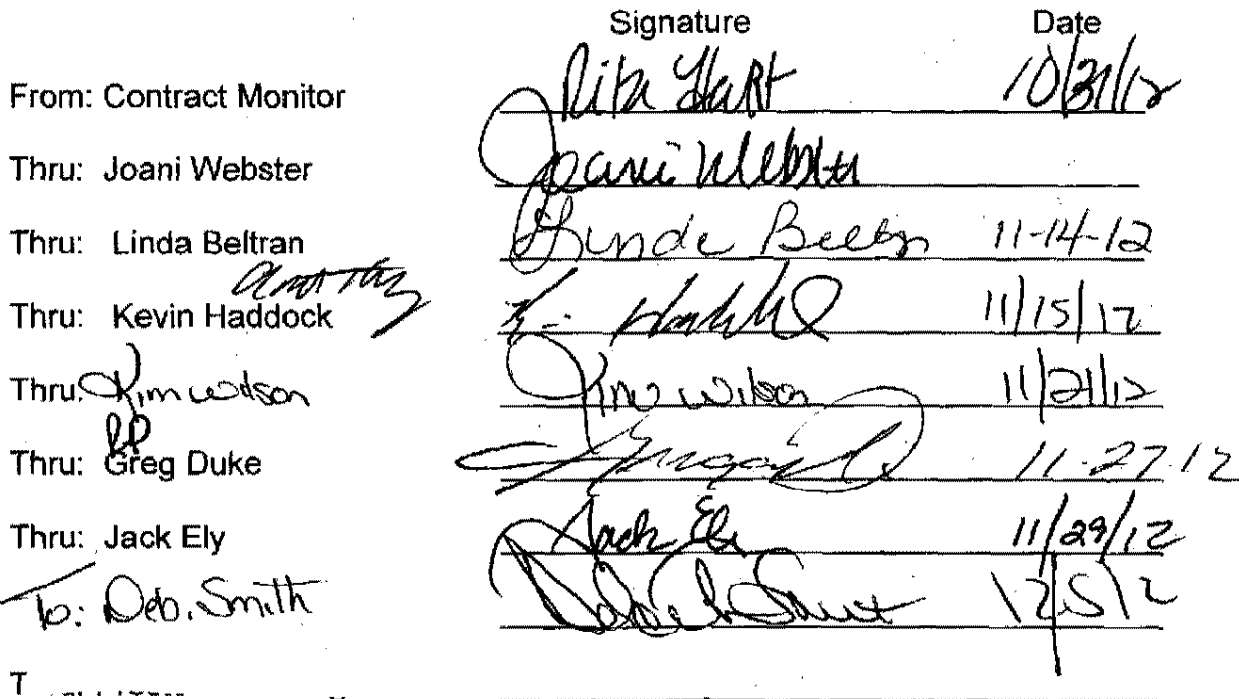 Signature Date
From: Contract Monitor Rita Hart 10/31/12
Thru: Joani Webster Joani Webster
Thru: Linda Beltran Linda Beltran 11-14-12
Thru: Kevin Haddock 11/15/12
Thru: Kim Wilson Kim Wilson 11/21/12
Thru: Greg Duke 11-27-12
Thru: Jack Ely Jack Ely 11/29/12
To: Deb. Smith 12/5/12
T